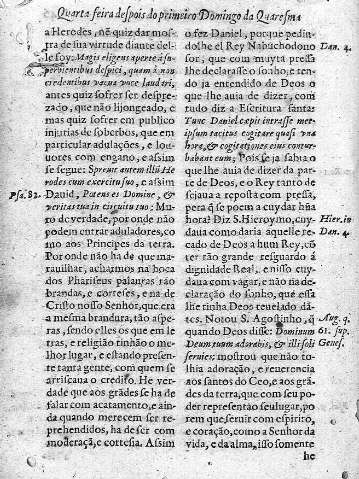 Quarta feira despois do primeiro Domingo da Quaresma
a Herodes, nẽ quiz dar mos-
tra de sua virtude diante del-
le soy. Magis eligens aperte à su-
perbientibus despici, quam à non
credentibus vacua voce laudari,
antes quiz sofrer ser despre-
zado, que não lijongeado, e
mas quiz sofrer em publico
injurias de soberbos, que em
particular adulações, e lou-
uores com engano, e assim
se segue: Spreuit autem illũ He-
rodes cum exercitu suo, e assim
Psa. 82. Dauid, Potens es Domine, &
veritas tua in circuitu tuo; Mu-
ro de verdade, por onde não
podem entrar aduladores, co
mo aos Principes da terra.
Por onde não ha de que ma-
rauilhar, acharmos na boca
dos Phariseus palauras tão
brandas, e corteses, e na de
Christo nosso Senhor, que era
a mesma brandura, tão aspe-
ras, sendo elles os que em le-
tras, e religião tinhão o me-
lhor lugar, e estando presen-
te tanta gente, com quem se
arriscaua o credito. He ver-
dade que aos grãdes se ha de
falar com acatamento, e ain-
da quando merecem ser re-
prehendidos, ha de ser com
moderaçã, e cortesia. Assim
o fez Daniel, porque pedin-
dolhe el Rey Nabuchodono Dan. 4.
sor, que com muyta pressa
lhe declarasse o sonho, e ten-
do ja entendido de Deos o
que lhe auia de dizer, com
tudo diz a Escritura santa:
Tunc Daniel cœpit intra se met-
ipsum tacitus cogitare quasi vna
hora, & cogitationes eius contur-
babant eum; Pois se ja sabia o
que lhe auia de dizer da par-
te de Deos, e o Rey tanto de
sejaua a reposta com pressa,
pera q̃ se poem a cuydar hũa
hora? Diz S. Hieronymo, cuy Hier. in
daua como daria aquelle re- Dan. 4.
cado de Deos a hum Rey, cõ
ter tão grande resguardo á
dignidade Real, e nisso cuy-
daua com vagar, e não na de-
claração do sonho, que essa
lhe tinha Deos reuelado dã-
tes. Notou S. Agostinho, q̃ Aug. q.
quando Deos disse: Dominum 61. sup.
Deum tuum adorabis, & illi soli Genes.
seruies; mostrou que não to-
lhia adoração, e reuerencia
aos santos do Ceo, e aos grã-
des da terra, que com seu po-
der representão seu lugar, po
rem que seruir com espirito,
e coração, como a Senhor da
vida, e da alma, isso somente
he